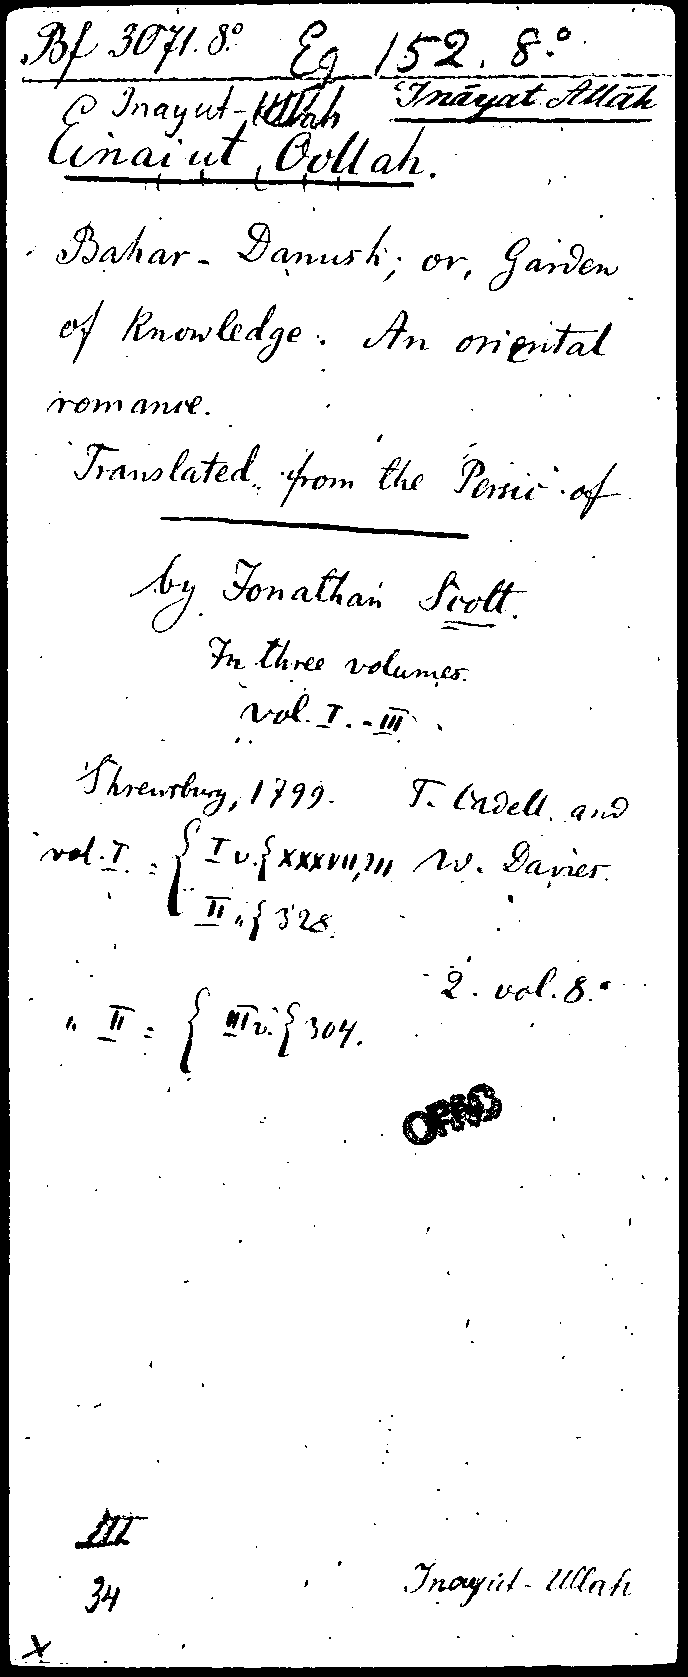 Bf 3071. 8.° Eg 152. 8.°
Inayut-Ullah ʿInāyat Allāh
Einaiut Oollah.
Bahar-Danush; or, Garden
of Knowledge. An oriental
romance.
Translated from the Persic of
by Jonathan Scott.
In three volumes.
vol. I. - III
Shrewsbury, 1799. T. Cadell and
vol. I = { I v. { XXXVII, W. Davies.
II " { 328.
2. vol. 8.°
" II = { III v. { 304.
III
34 Inayut-Ullah
x